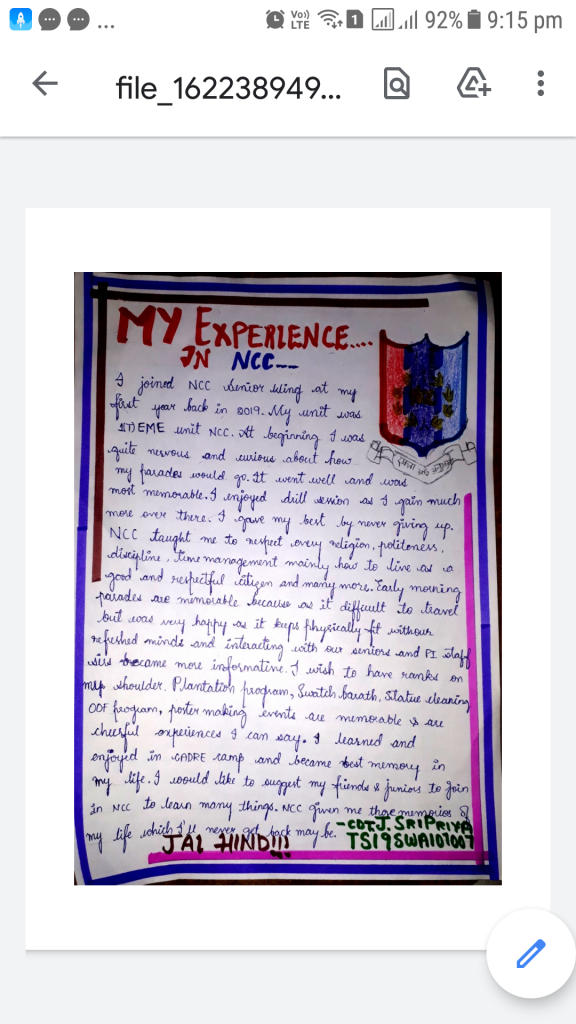 92% 9:15 pm
file_162238949...
MY EXPERIENCE....
IN NCC--
I joined NCC senior wing at my
first year back in 2019. My unit was
EME unit NCC. At beginning I was
quite nervous and curious about how
my parades would go. It went well and was
most memorable. I enjoyed drill session as I gain much
more over there. I gave my best by never giving up.
NCC taught me to respect every religion, politeness,
discipline, time management mainly how to live as a
good and respectful citizen and many more. Early morning
parades are memorable because as it difficult to travel
but was very happy as it keeps physically fit withour
refreshed minds and interacting with our seniors and PI staff
sirs became more informative. I wish to have ranks on
my shoulder. Plantation program, Swatch barath, Statue cleaning,
OOF program, poster making events are memorable & are
cheerful experiences I can say. I learned and
enjoyed in CADRE camp and became best memory in
my life. I would like to suggest my friends & juniors to join
in NCC to learn many things. NCC given me those memories of
my life which I'll never get back may be.
-CDT J. SRIPRIYA
TS19SWA101007
JAI HIND!!!